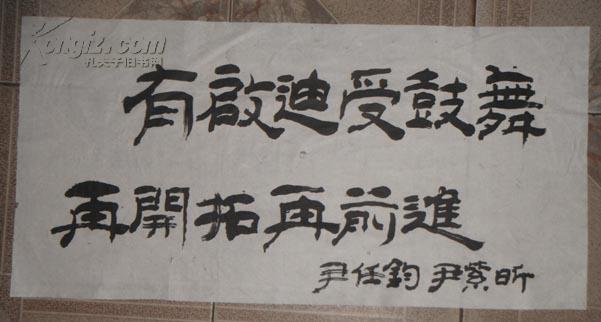 Kongfz.com
孔夫子旧书网
有啟迪受鼓舞
再開拓再前進
尹任鈞 尹紫昕